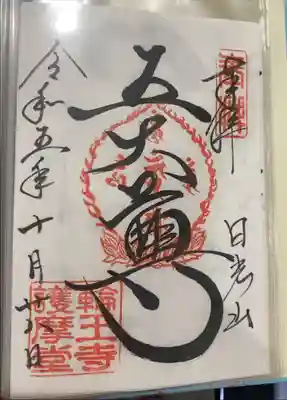 奉拝
日光山
五大尊
令和五年十月
輪王寺
護摩堂